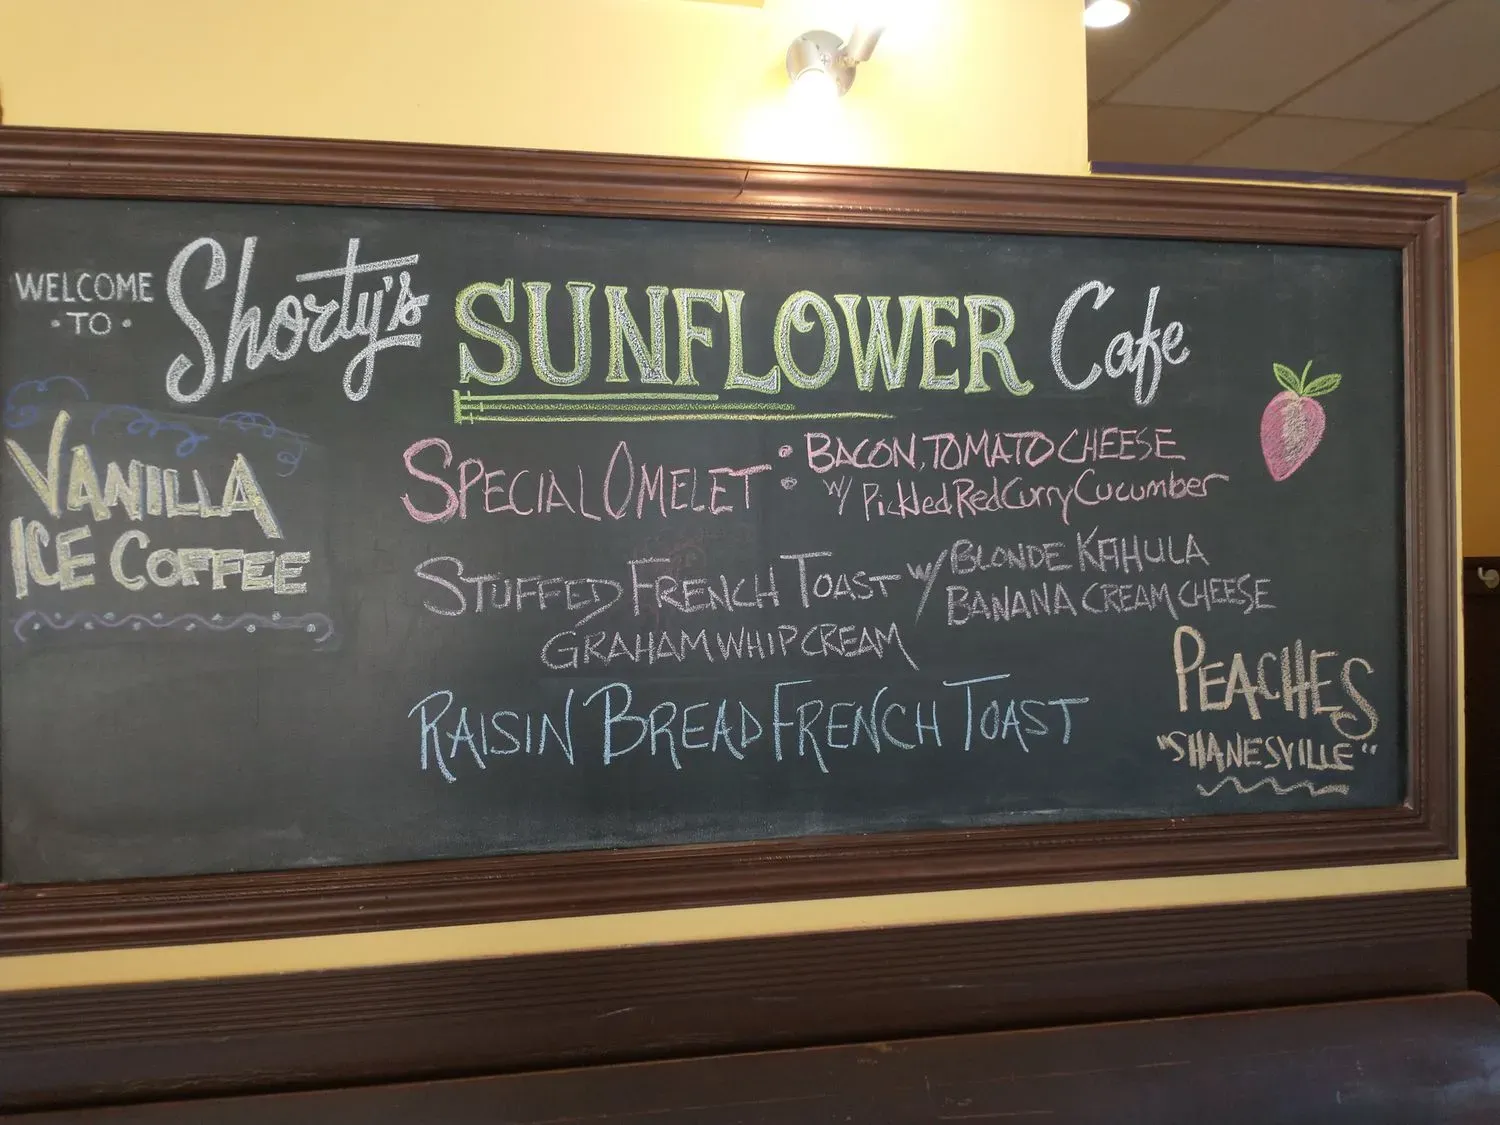 WELCOME
· TO ·
Shorty's SUNFLOWER Cafe
VANILLA
ICE COFFEE
SPECIAL OMELET : BACON, TOMATO CHEESE
w/ PickledRedCurryCucumber
STUFFED FRENCH TOAST w/ BLONDE KAHULA
BANANA CREAM CHEESE
GRAHAM WHIP CREAM
RAISIN BREAD FRENCH TOAST
PEACHES
"SHANESVILLE"